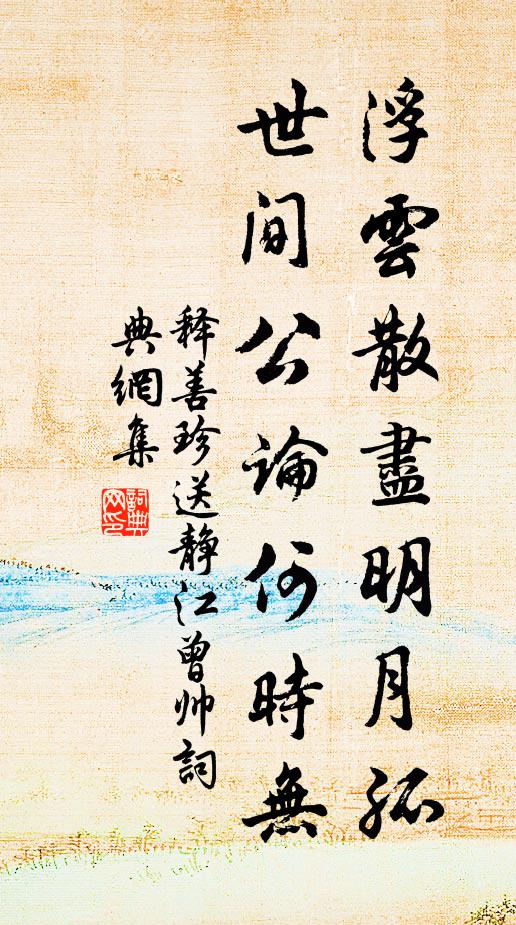 浮雲散盡明月孤
世间公論何時無
释善珍送静江曾帅詞
典網集
詞典
网印